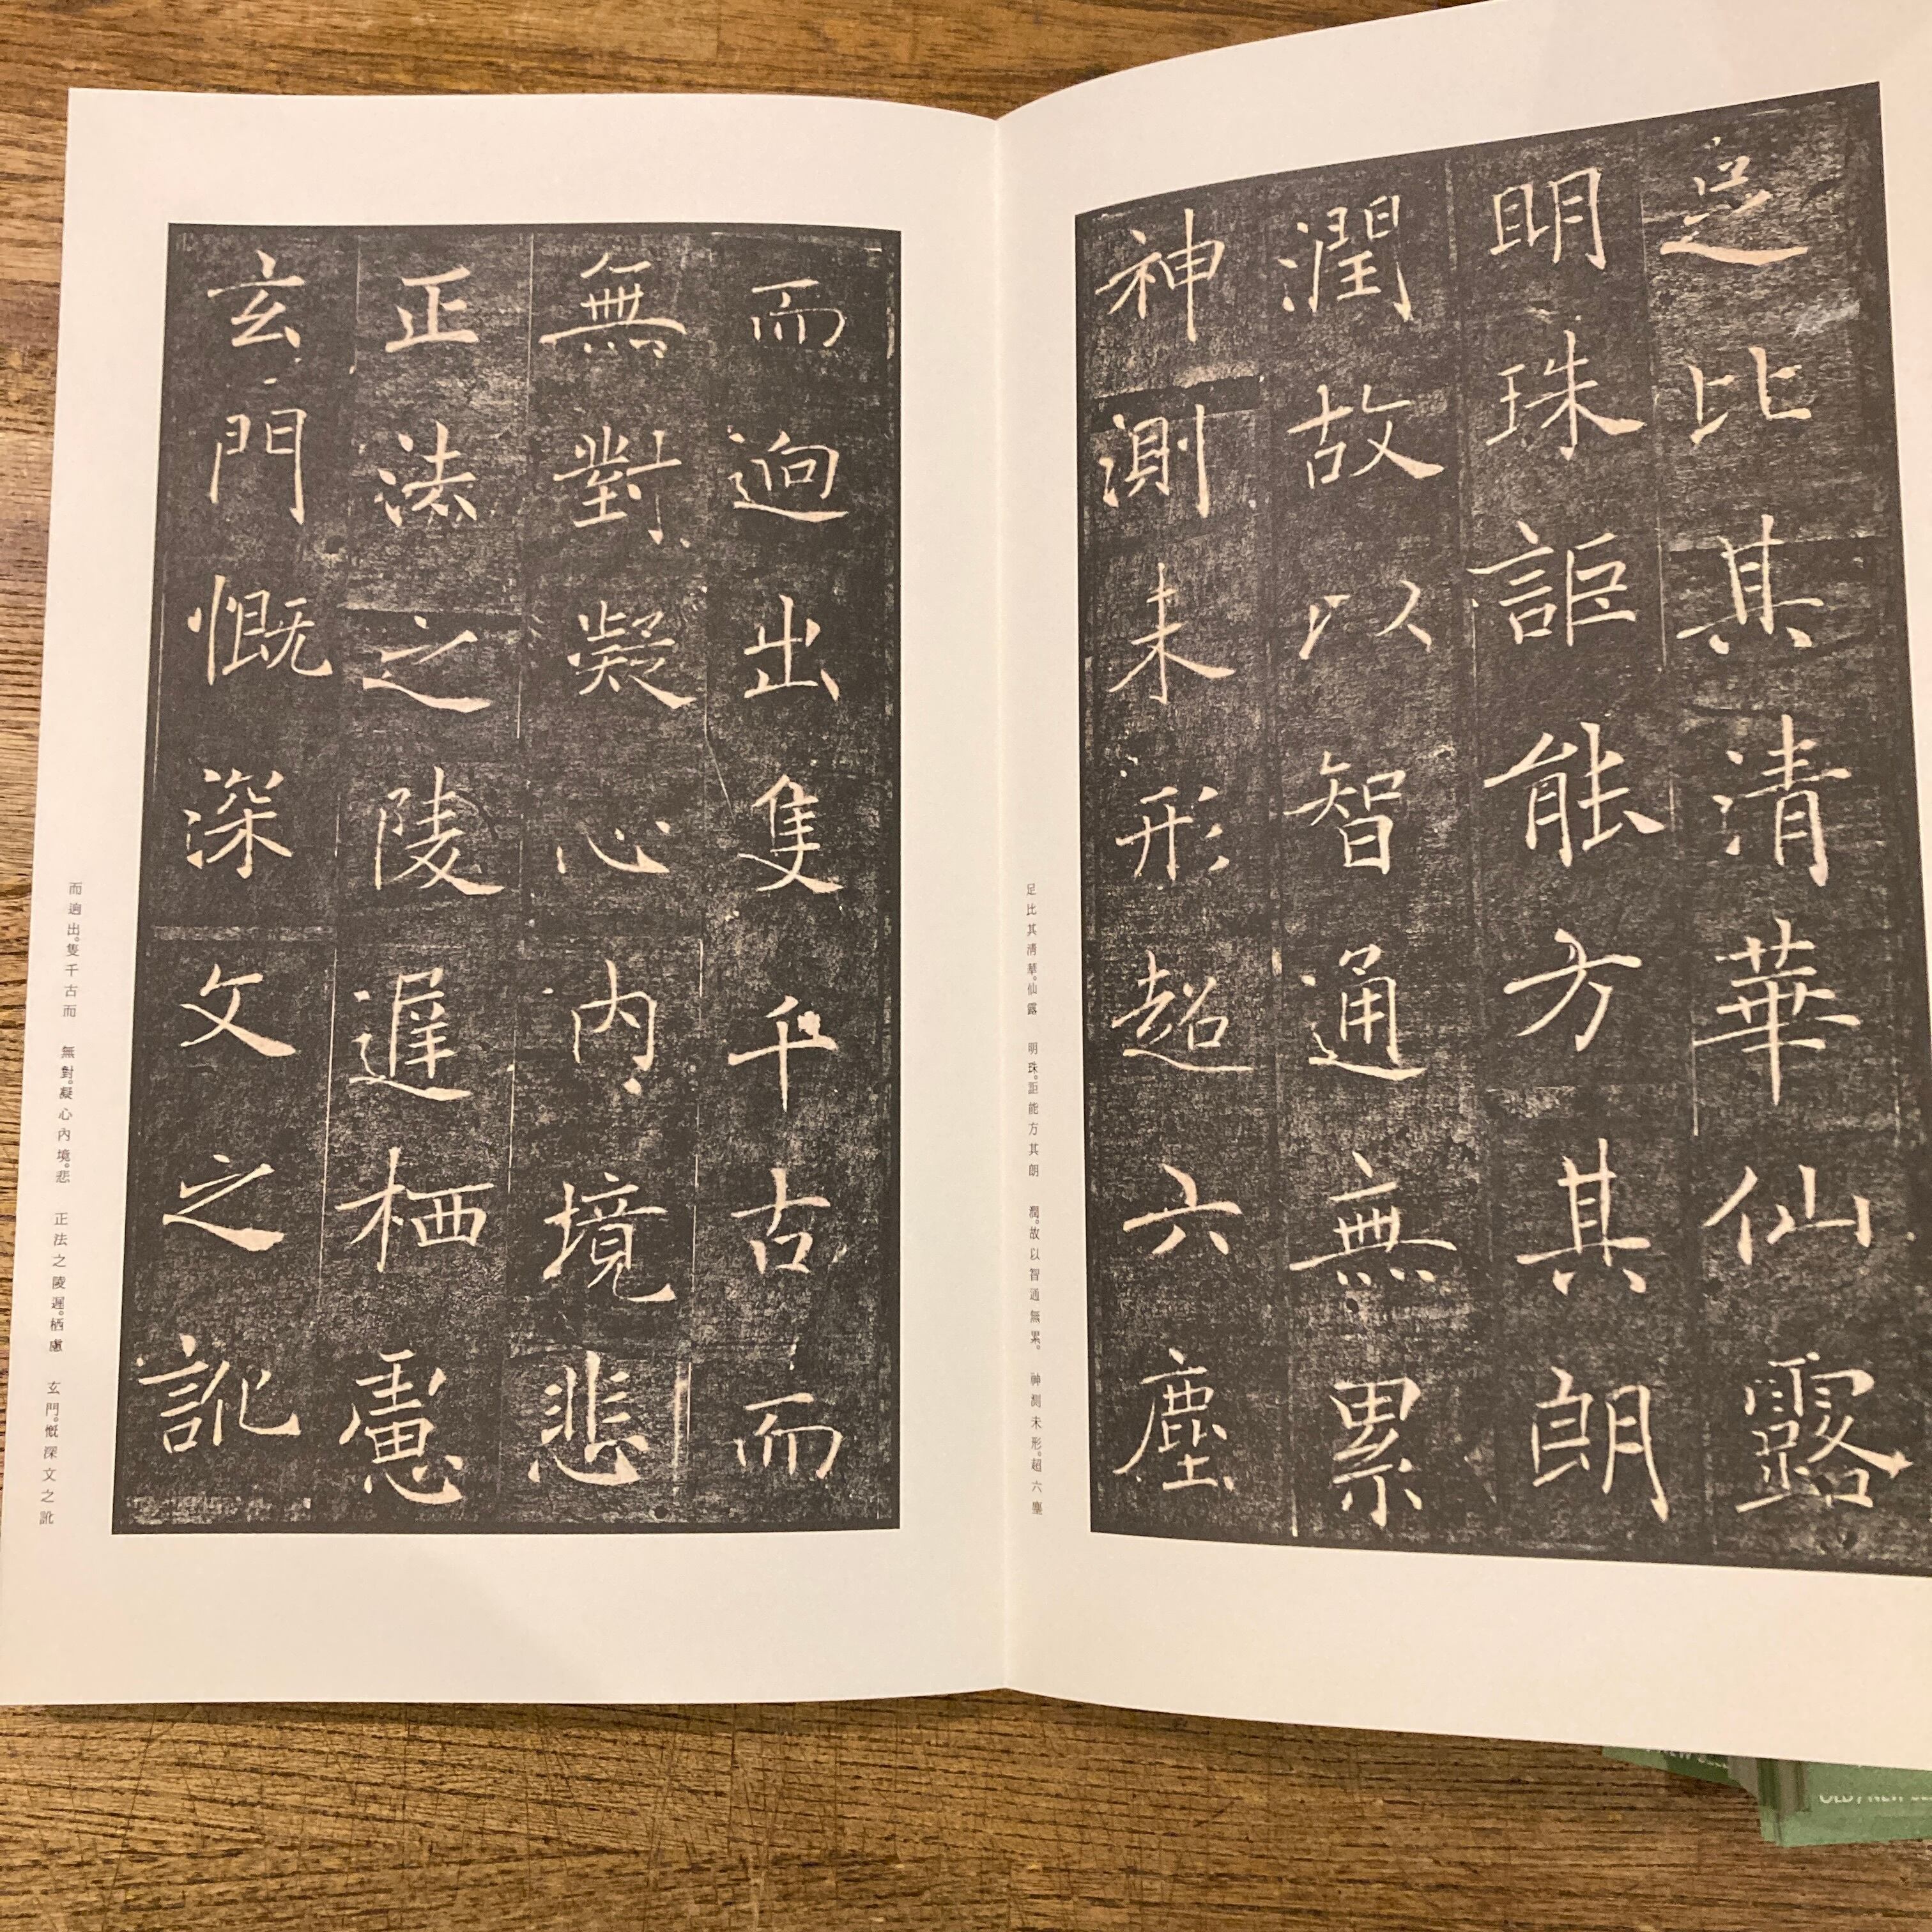 足比其清華仙露
明珠詎能方其朗
潤故以智通無累
神測未形超六塵
足比其清華。仙露 明珠。詎能方其朗 潤。故以智通無累。 神測未形。超六塵
而逈出隻千古而
無對凝心内境悲
正法之陵遅栖慮
玄門慨深文之訛
而逈出。隻千古而 無對。凝心内境。悲 正法之陵遲。栖慮 玄門。慨深文之訛